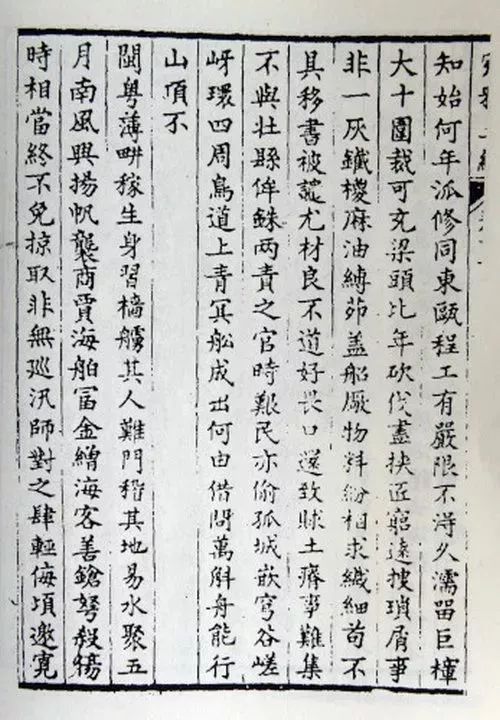 知始何年派修同東甌程工有嚴限不淂久濡畱巨樟
大十圍裁可充梁頭比年砍伐盡抶匠窮遠搜瑣屑事
非一灰鐵椶麻油縛茆盖船厰物料紛相求纎細苟不
具移書被讒尤材良不道好長口還致賕土瘠事難集
不與壯縣侔銖两責之官時艱民亦偷孤城嵌穹谷嵯
岈環四周鳥道上青冥船成出何由借問萬斛舟能行
山頂不
閩粤薄畊稼生身習檣艣其人難門稽其地易水聚五
月南風興揚帆襲商賈海舶冨金繒海客善鎗弩殺傷
時相當終不免掠取非無巡汛師對之肆輕侮頃邀寛